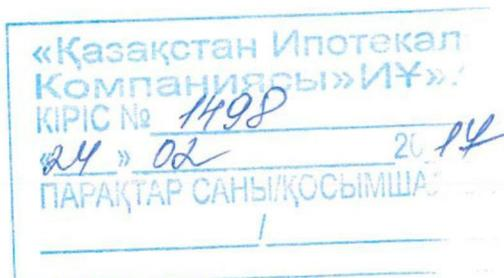 «Қазақстан Ипотекал
Компаниясы»ИҰ»
КІРІС № 1498
«24» 02 2017
ПАРАҚТАР САНЫ/ҚОСЫМША
/